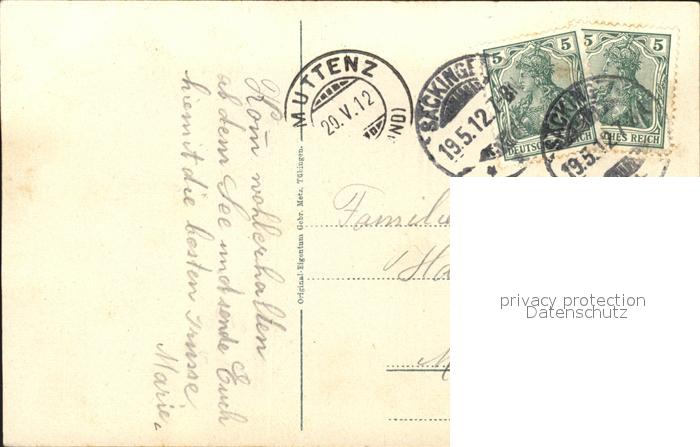 Kom wohlerhalten
ab dem See und sende Euch
hiemit die besten Grüsse
Marie.
Original-Eigentum Gebr. Metz, Tübingen.
MUTTENZ
20.V.12
SÄCKINGEN
19.5.12
5
DEUTSCHES REICH
5
DEUTSCHES REICH
SÄCKINGEN
19.5.12
Familie
privacy protection
Datenschutz